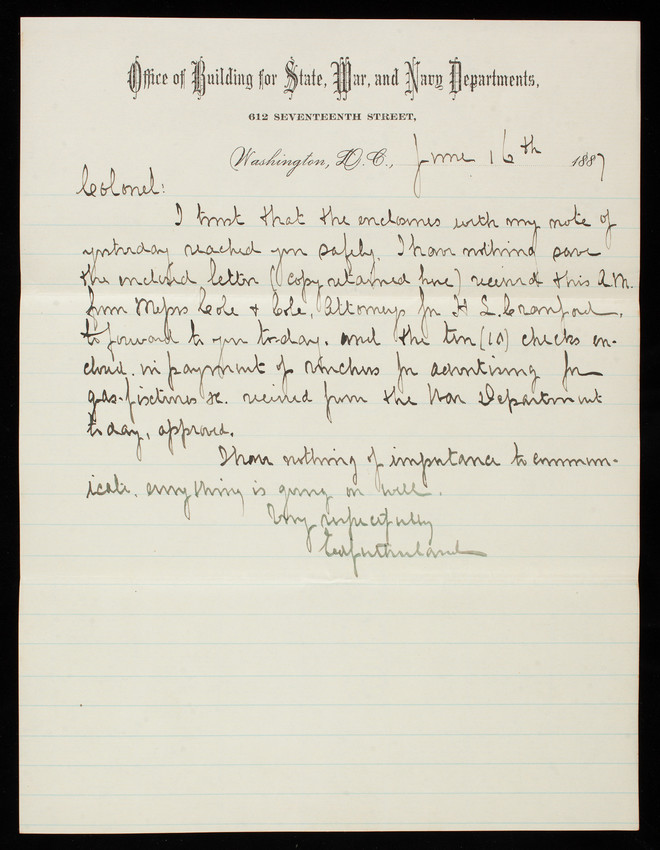 Office of Building for State, War, and Navy Departments,
612 SEVENTEENTH STREET,
Washington, D.C., June 16th 1887
Colonel:
I trust that the enclosures with my note of
yesterday reached you safely. I have nothing save
the enclosed letter (copy retained here) received this A.M.
from Messrs Cole & Cole, Attorneys for H. L. Cranford,
to forward to you to-day. and the ten (10) checks en-
closed. in payment of vouchers for advertising for
gas-fixtures &c. received from the War Department
to day, approved.
I have nothing of importance to commun-
icate. everything is going on well.
Very respectfully